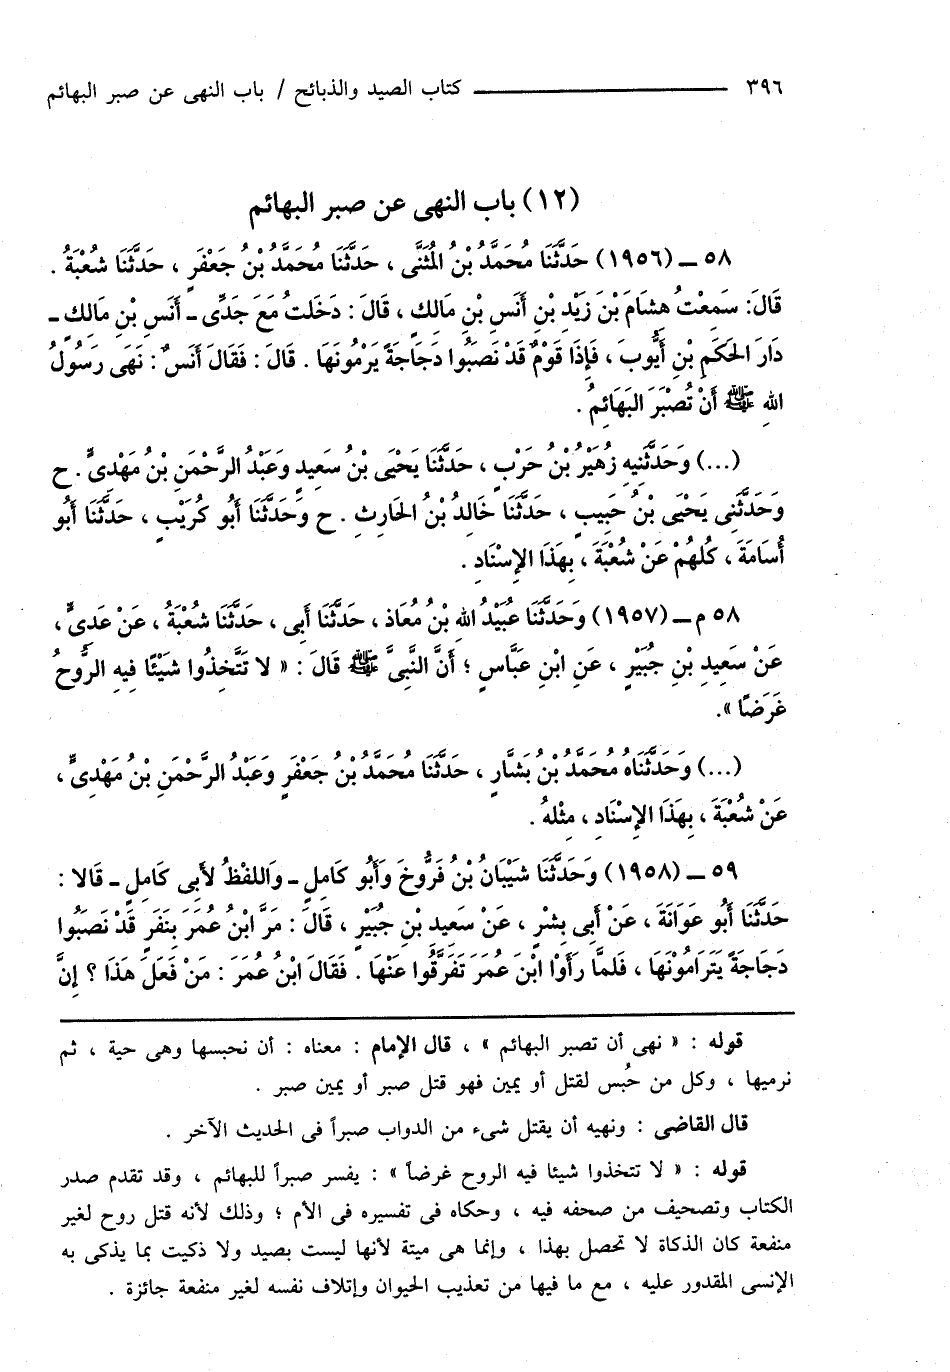 ٣٩٦ ــــــــــــ كتاب الصيد والذبائح / باب النهى عن صبر البهائم
(١٢) باب النهى عن صبر البهائم
٥٨ ــ (١٩٥٦) حَدَّثَنَا مُحَمَّدُ بْنُ المُثَنَّى ، حَدَّثَنَا مُحَمَّدُ بْنُ جَعْفَرٍ ، حَدَّثَنَا شُعْبَةُ .
قَالَ: سَمِعْتُ هِشَامَ بْنَ زَيْدِ بْنِ أَنَسِ بْنِ مَالِكٍ ، قَالَ : دَخَلتُ مَعَ جَدِّى ـ أَنَسِ بْنِ مَالِكٍ ـ
دَارَ الحَكَمِ بْنِ أَيُّوبَ ، فَإِذَا قَوْمٌ قَدْ نَصَبُوا دَجَاجَةً يَرْمُونَهَا . قَالَ : فَقَالَ أَنَسٌ : نَهَى رَسُولُ
اللهِ ﷺ أَنْ تُصْبَرَ البَهَائِمُ .
(...) وَحَدَّثَنِيهِ زُهَيْرُ بْنُ حَرْبٍ ، حَدَّثَنَا يَحْيَى بْنُ سَعِيدٍ وَعَبْدُ الرَّحْمَنِ بْنُ مَهْدِىٍّ . ح
وَحَدَّثَنِى يَحْيَى بْنُ حَبِيبٍ ، حَدَّثَنَا خَالِدُ بْنُ الحَارِثِ . ح وَحَدَّثَنَا أَبُو كُرَيْبٍ ، حَدَّثَنَا أَبُو
أُسَامَةَ ، كُلهُمْ عَنْ شُعْبَةَ ، بِهَذَا الإِسْنَادِ .
٥٨ م ــ (١٩٥٧) وَحَدَّثَنَا عُبَيْدُ اللهِ بْنُ مُعَاذٍ ، حَدَّثَنَا أَبِى ، حَدَّثَنَا شُعْبَةُ ، عَنْ عَدِىٍّ ،
عَنْ سَعِيدِ بْنِ جُبَيْرٍ ، عَنِ ابْنِ عَبَّاسٍ ؛ أَنَّ النَّبِىَّ ﷺ قَالَ : « لا تَتَّخِذُوا شَيْئًا فِيهِ الرُّوحُ
غَرَضًا ».
(...) وَحَدَّثَنَاهُ مُحَمَّدُ بْنُ بَشَّارٍ ، حَدَّثَنَا مُحَمَّدُ بْنُ جَعْفَرٍ وَعَبْدُ الرَّحْمَنِ بْنُ مَهْدِىٍّ ،
عَنْ شُعْبَةَ ، بِهَذَا الإِسْنَادِ ، مِثْلهُ .
٥٩ ــ (١٩٥٨) وَحَدَّثَنَا شَيْبَانُ بْنُ فَرُّوخَ وَأَبُو كَامِلٍ ـ وَاللفْظُ لأَبِى كَامِلٍ ـ قَالا :
حَدَّثَنَا أَبُو عَوَانَةَ ، عَنْ أَبِى بِشْرٍ ، عَنْ سَعِيدِ بْنِ جُبَيْرٍ ، قَالَ : مَرَّ ابْنُ عُمَرَ بِنَفَرٍ قَدْ نَصَبُوا
دَجَاجَةً يَتَرَامُونَهَا ، فَلمَّا رَأَوْا ابْنَ عُمَرَ تَفَرَّقُوا عَنْهَا . فَقَالَ ابْنُ عُمَرَ : مَنْ فَعَلَ هَذَا ؟ إِنَّ
قوله : « نهى أن تصبر البهائم » ، قال الإمام : معناه : أن نحبسها وهى حية ، ثم
نرميها ، وكل من حُبس لقتل أو يمين فهو قتل صبر أو يمين صبر .
قال القاضى : ونهيه أن يقتل شىء من الدواب صبراً فى الحديث الآخر .
قوله : « لا تتخذوا شيئا فيه الروح غرضاً » : يفسر صبراً للبهائم ، وقد تقدم صدر
الكتاب وتصحيف من صحفه فيه ، وحكاه فى تفسيره فى الأم ؛ وذلك لأنه قتل روح لغير
منفعة كان الذكاة لا تحصل بهذا ، وإنما هى ميتة لأنها ليست بصيد ولا ذكيت بما يذكى به
الإنسى المقدور عليه ، مع ما فيها من تعذيب الحيوان وإتلاف نفسه لغير منفعة جائزة .